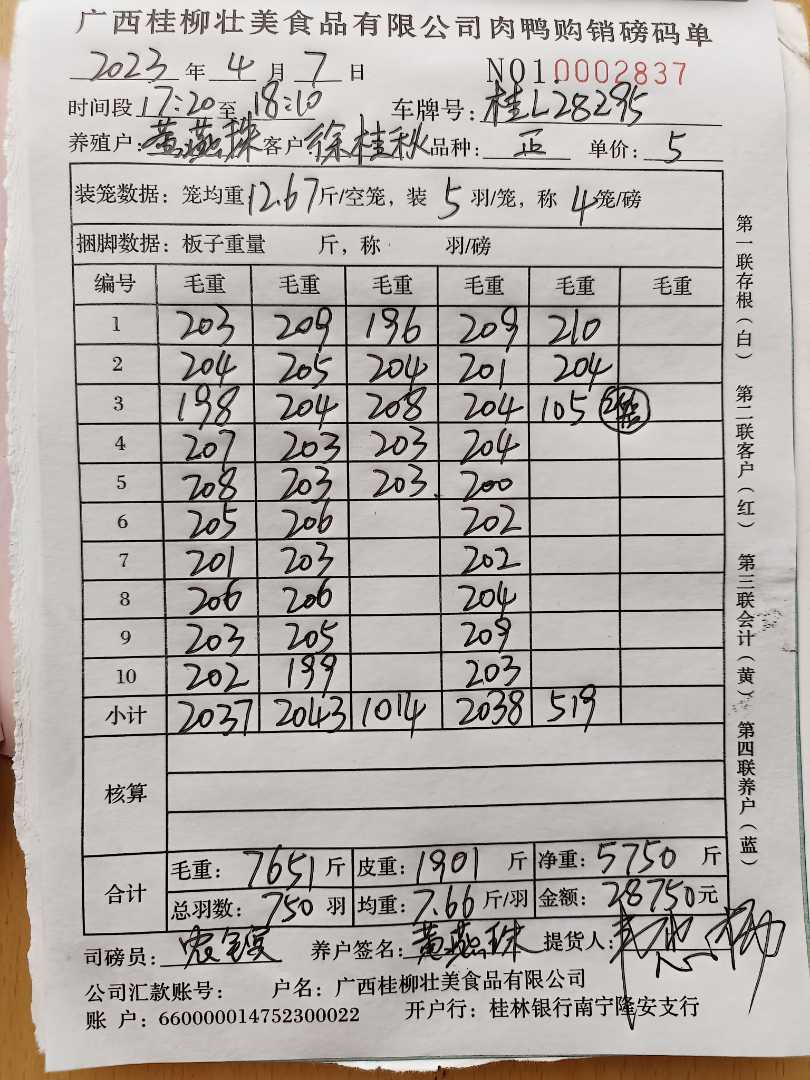 广西桂柳壮美食品有限公司肉鸭购销磅码单
2023 年 4 月 7 日 NO1.0002837
时间段 17:20 至 18:10 车牌号: 桂L28295
养殖户: 黄燕珠 客户: 徐桂秋 品种: 正 单价: 5
装笼数据: 笼均重 12.67 斤/空笼, 装 5 羽/笼, 称 4 笼/磅
捆脚数据: 板子重量 斤, 称 羽/磅
编号 毛重 毛重 毛重 毛重 毛重 毛重
1 203 209 196 209 210
2 204 205 204 201 204
3 198 204 208 204 105
4 207 203 203 204
5 208 203 203. 200
6 205 206 202
7 201 203 202
8 206 206 204
9 203 205 209
10 202 199 203
小计 2037 2043 1014 2038 519
核算
合计 毛重: 7651 斤 皮重: 1901 斤 净重: 5750 斤
总羽数: 750 羽 均重: 7.66 斤/羽 金额: 28750 元
司磅员: 养户签名: 黄燕珠 提货人:
公司汇款账号: 户名: 广西桂柳壮美食品有限公司
账 户: 660000014752300022 开户行: 桂林银行南宁隆安支行
第一联存根(白) 第二联客户(红) 第三联会计(黄) 第四联养户(蓝)